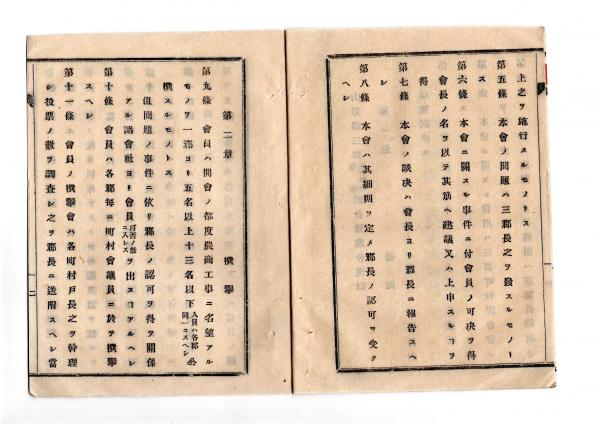 第上之ヲ施行スルモノトス
第五條　本會ノ問題ハ三郡長之ヲ發スルモノトス
第六條　本會ニ關スル事件ニ付會員ノ可決ヲ得
會長ノ名ヲ以テ其筋ヘ建議又ハ上申スルコヲ
得
第七條　本會ノ議决ハ會長ヨリ郡長ニ報告スヘ
シ
第八條　本會ハ其細則ヲ定メ郡長ノ認可ヲ受ク
ヘシ
第二章　撰擧
第九條　會員ハ開會ノ都度農商工事ニ名望アル
モノヲ一郡ヨリ五名以上十三名以下人員ハ各郡同一ニスヘシ公
撰スルモノトス
但問題ノ事件ニ依リ郡長ノ認可ヲ得ヲ關係
アル諸會社ヨリ會員可否ノ數ニ入レスヲ出スコアルヘシ
第十條　會員ハ各郡每ニ町村會議員ニ於ヲ撰擧
スヘシ
第十一條　會員ノ撰擧會ハ各町村戸長之ヲ幹理
シ投票ノ數ヲ調査シ之ヲ郡長ニ送附スヘシ當
二